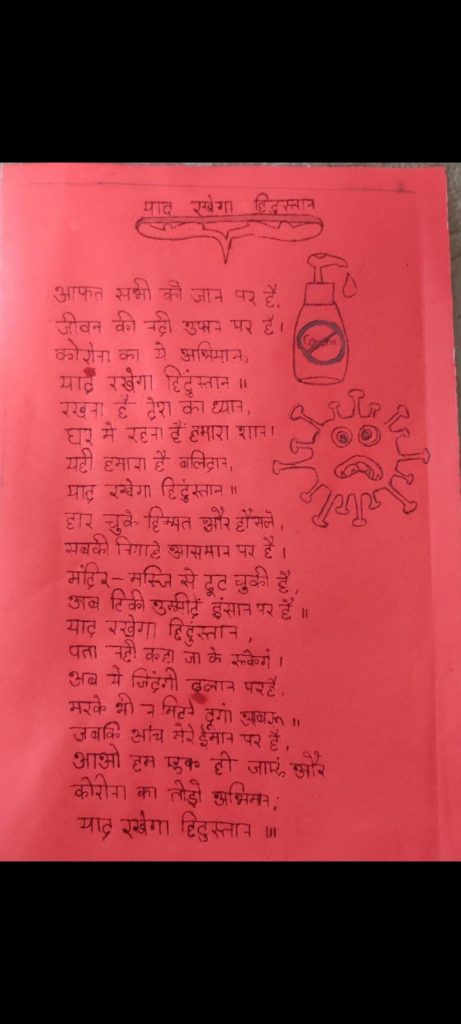 याद रखेगा हिंदुस्तान
आफत सभी की जान पर है,
जीवन की नदी तुफान पर है।
कोरोना का ये अभिमान,
याद रखेगा हिंदुस्तान॥
रखना है देश का ध्यान,
घर मे रहना है हमारा शान।
यही हमारा है बलिदान,
याद रखेगा हिंदुस्तान॥
हार चुके हिम्मत और हौंसले,
सबकी निगाहे आसमान पर है।
मंदिर - मस्जि से टूट चुकी है,
अब टिकी उम्मीदें इंसान पर है॥
याद रखेगा हिंदुस्तान,
पता नही कहा जा के रुकेगं।
अब ये जिंदगी ढलान पर है,
मरके भी न मिटने दूगां आबरू॥
जबकि आंच मेरे ईमान पर है,
आओ हम एक ही जाएं और
कोरोना का तोड़ो अभिमान,
याद रखेगा हिंदुस्तान॥।
Corona